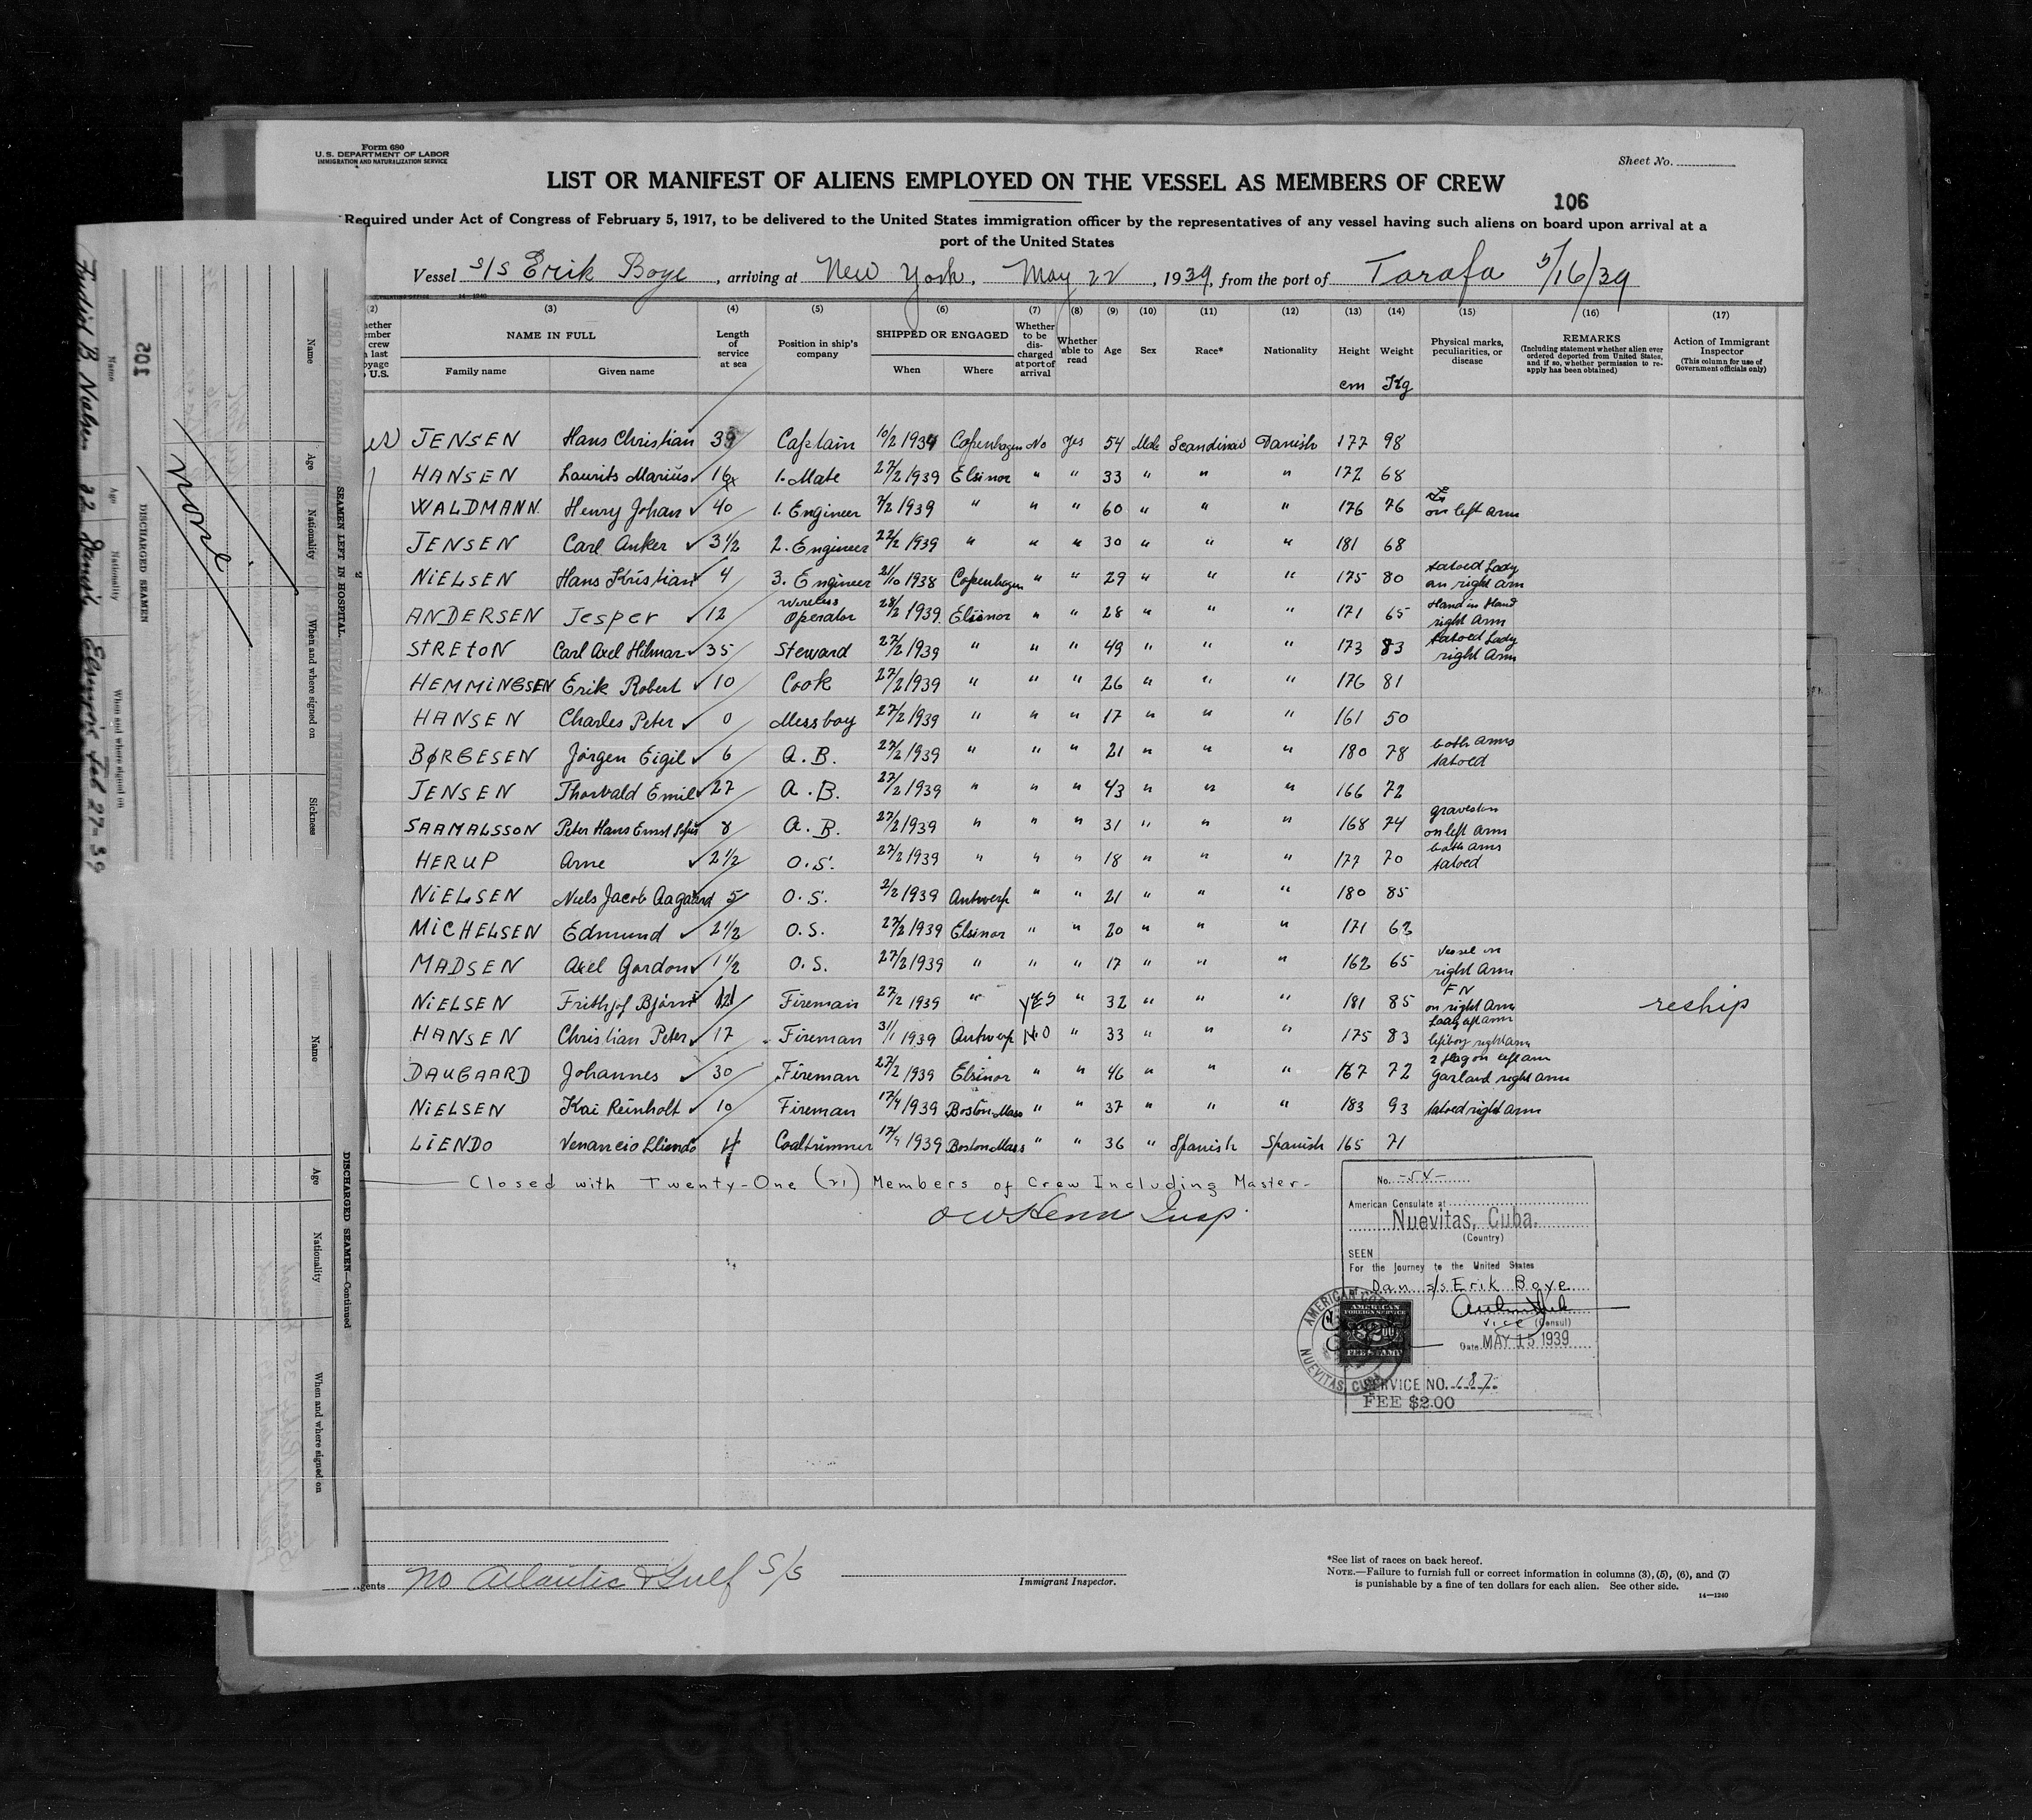 Form 680
U.S. DEPARTMENT OF LABOR
IMMIGRATION AND NATURALIZATION SERVICE
Sheet No.
LIST OR MANIFEST OF ALIENS EMPLOYED ON THE VESSEL AS MEMBERS OF CREW
106
Required under Act of Congress of February 5, 1917, to be delivered to the United States immigration officer by the representatives of any vessel having such aliens on board upon arrival at a
port of the United States
Vessel s/s Erik Boye, arriving at New York, May 22, 1939, from the port of Tarafa 5/16/39
(2) (3) (4) (5) (6) (7) (8) (9) (10) (11) (12) (13) (14) (15) (16) (17)
NAME IN FULL
Family name Given name
Length of service at sea
Position in ship's company
SHIPPED OR ENGAGED
When Where
Whether to be discharged at port of arrival
Whether able to read
Age Sex Race* Nationality
Height cm
Weight Kg
Physical marks, peculiarities, or disease
REMARKS
(Including statement whether alien ever ordered deported from United States, and if so, whether permission to reapply has been obtained)
Action of Immigrant Inspector
(This column for use of Government officials only)
JENSEN Hans Christian 39 Captain 10/2 1939 Copenhagen No Yes 54 Male Scandinav Danish 177 98
HANSEN Laurits Marius 16 1. Mate 27/2 1939 Elsinor " " 33 " " " 172 68
WALDMANN Henry Johan 40 1. Engineer 7/2 1939 " " " 60 " " " 176 76 on left arm
JENSEN Carl Anker 3 1/2 2. Engineer 22/2 1939 " " " 30 " " " 181 68
NIELSEN Hans Kristian 4 3. Engineer 21/10 1938 Copenhagen " " 29 " " " 175 80 tatoed Lady on right arm
ANDERSEN Jesper 12 Wireless Operator 28/2 1939 Elsinor " " 28 " " " 171 65 Hand in Hand right Arm
STRETON Carl Axel Hilmar 35 Steward 27/2 1939 " " " 49 " " " 173 83 tatoed Lady right Arm
HEMMINGSEN Erik Robert 10 Cook 27/2 1939 " " " 26 " " " 176 81
HANSEN Charles Peter 0 Messboy 27/2 1939 " " " 17 " " " 161 50
BØRGESEN Jørgen Eigil 6 A.B. 27/2 1939 " " " 21 " " " 180 78 both arms tatoed
JENSEN Thorvald Emil 27 A.B. 27/2 1939 " " " 43 " " " 166 72
SAAMALSSON Peter Hans Ernst Sofus 8 A.B. 27/2 1939 " " " 31 " " " 168 74 graveston on left arm
HERUP Arne 2 1/2 O.S. 27/2 1939 " " " 18 " " " 177 70 both arms tatoed
NIELSEN Niels Jacob Aagaard 5 O.S. 2/2 1939 Antwerp " " 21 " " " 180 85
MICHELSEN Edmund 2 1/2 O.S. 27/2 1939 Elsinor " " 20 " " " 171 62
MADSEN Axel Gordon 1 1/2 O.S. 27/2 1939 " " " 17 " " " 162 65 Vessel on right Arm
NIELSEN Frithjof Bjørn 12 Fireman 27/2 1939 " yes " 32 " " " 181 85 FN on right Arm reship
HANSEN Christian Peter 17 Fireman 31/1 1939 Antwerp No " 33 " " " 175 83
DAUGAARD Johannes 30 Fireman 27/2 1939 Elsinor " " 46 " " " 167 72 2 flag on left arm Garland right arm
NIELSEN Kai Reinholt 10 Fireman 17/4 1939 Boston Mass " " 37 " " " 183 93 tatoed right arm
LIENDO Venancio Lliendo 4 Coaltrimmer 17/4 1939 Boston Mass " " 36 " Spanish Spanish 165 71
Closed with Twenty-One (21) Members of Crew Including Master-
No.
American Consulate at
Nuevitas, Cuba.
(Country)
SEEN
For the Journey to the United States
Dan s/s Erik Boye
vice (Consul)
Date MAY 15 1939
SERVICE NO. 187
FEE $2.00
AMERICAN
FOREIGN SERVICE
FEE STAMP
NUEVITAS, CUBA
No Atlantic & Gulf S/S
Immigrant Inspector.
*See list of races on back hereof.
NOTE.—Failure to furnish full or correct information in columns (3), (5), (6), and (7)
is punishable by a fine of ten dollars for each alien. See other side.
14—1240
SEAMEN LEFT IN HOSPITAL
Name Age Nationality When and where signed on Sickness
None.
105
DISCHARGED SEAMEN
Name Age Nationality When and where signed on
B Nielsen 32 Danish Elsinore Feb 27-39
DISCHARGED SEAMEN—Continued
Name Age Nationality When and where signed on